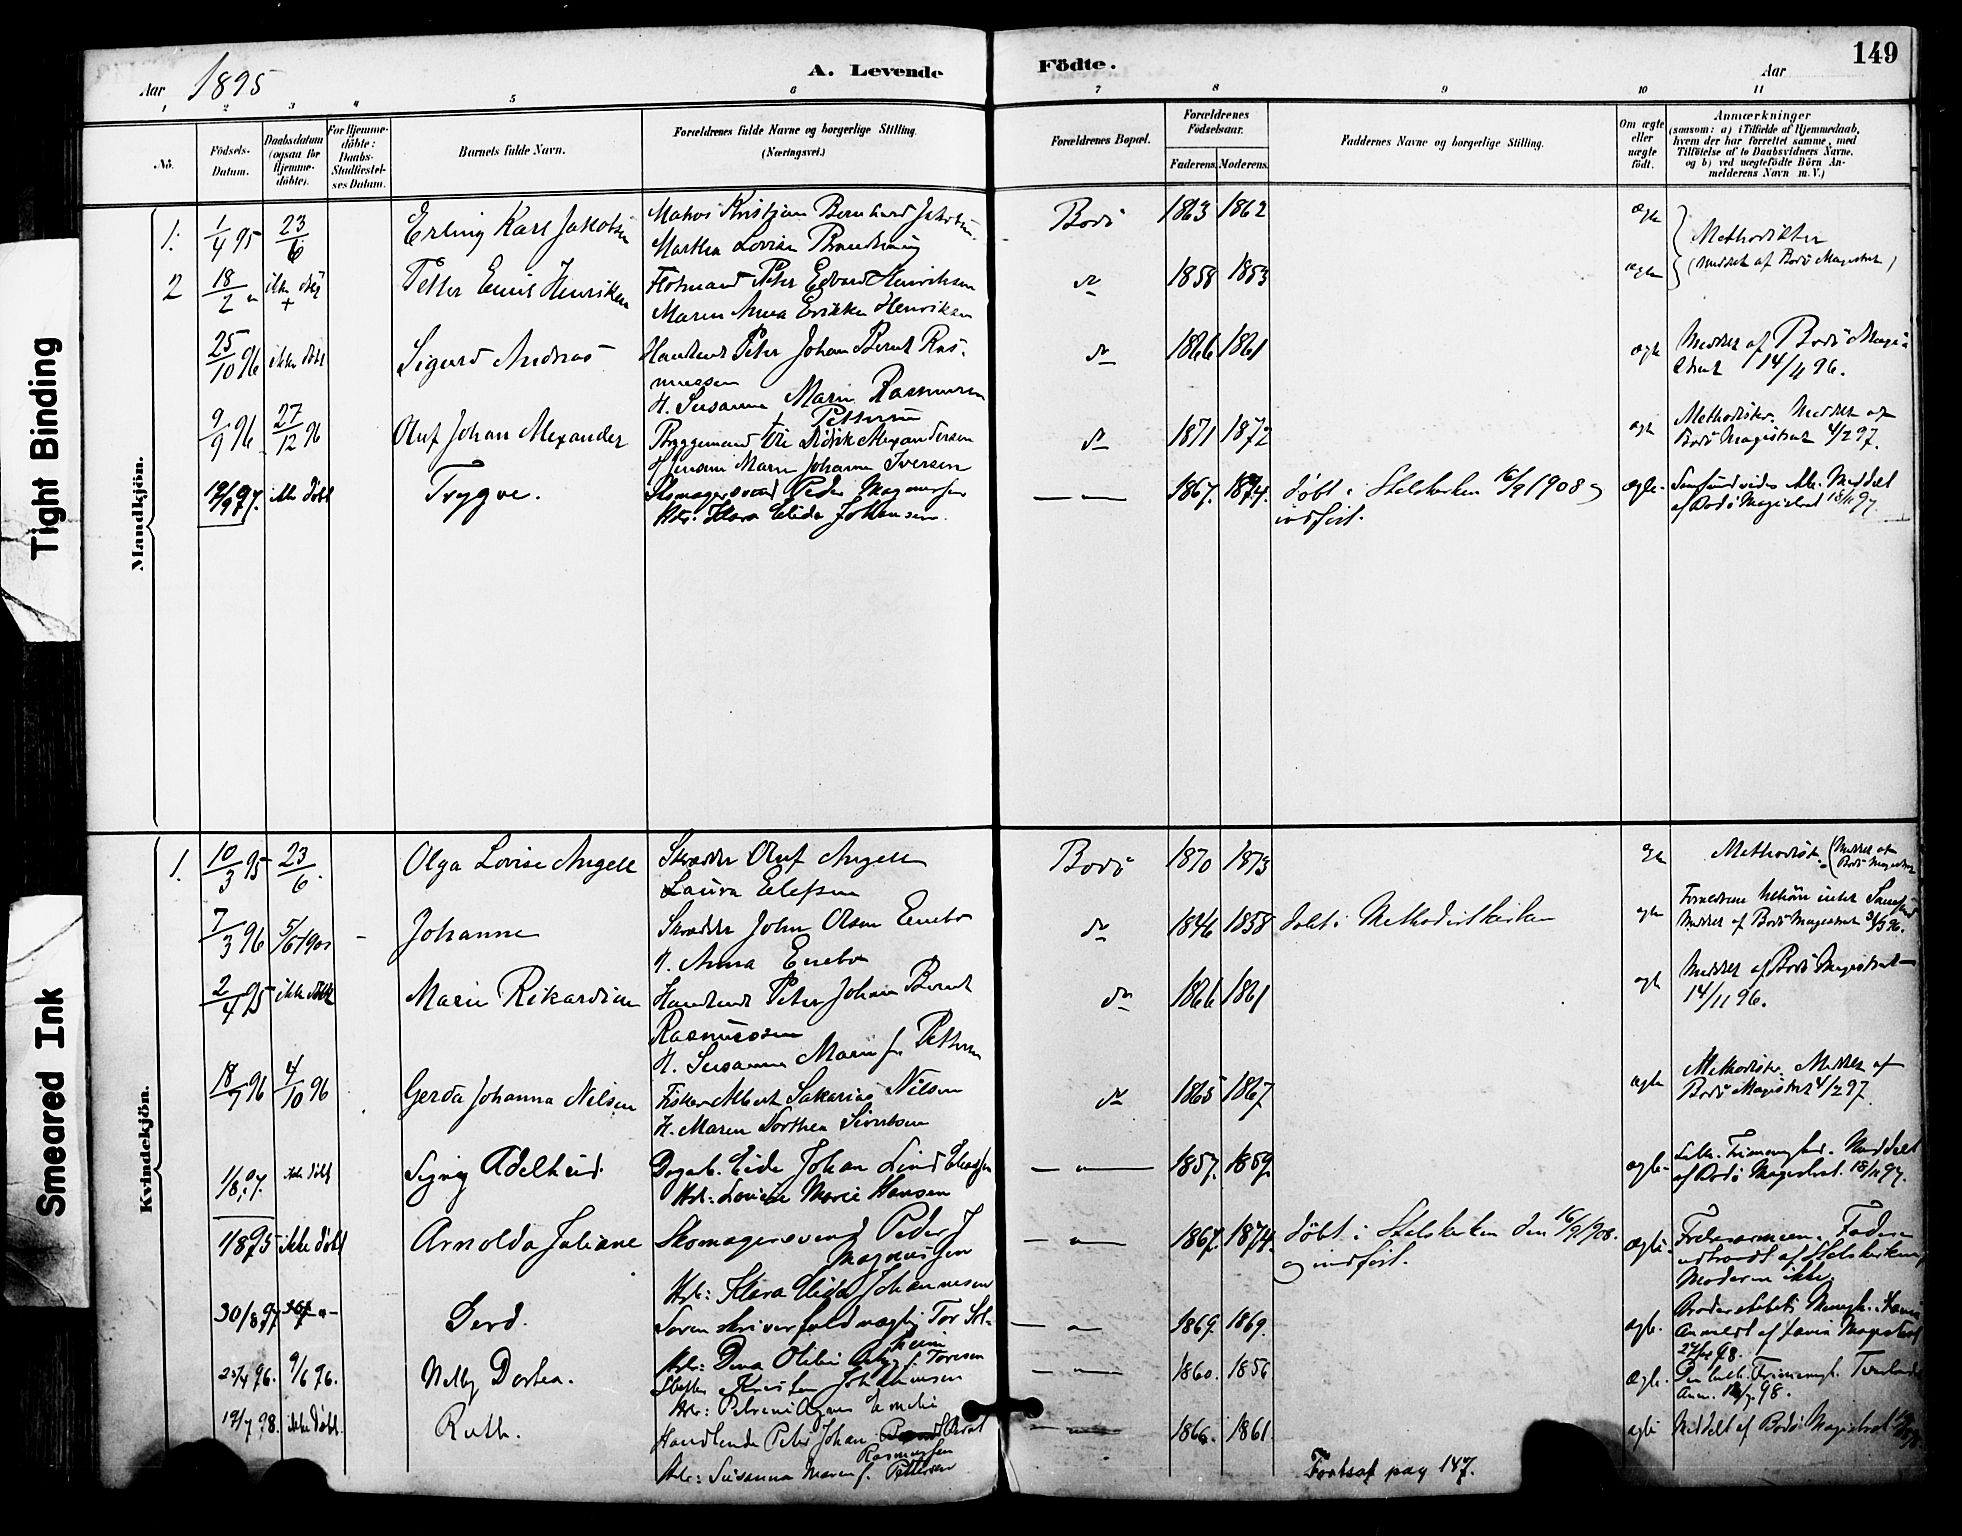 149
Aar 1895
A. Levende Födte.
Aar
1 2 3 4 5 6 7 8 9 10 11
Nö.
Födsels-Datum.
Daabsdatum (ogsaa for Hjemme-döbte).
For Hjemme-döbte: Daabs-Stadfæstel-ses Datum.
Barnets fulde Navn.
Forældrenes fulde Navne og borgerlige Stilling.
(Næringsvei.)
Forældrenes Bopæl.
Forældrenes Födselsaar.
Faderens. Moderens.
Faddernes Navne og borgerlige Stilling.
Om ægte eller uægte födt.
Anmærkninger
(saasom: a) i Tilfælde af Hjemmedaab,
hvem der har forrettet samme, med
Tilföielse af to Daabsvidners Navne,
og b) ved uægtefödte Börn An-
melderens Navn m. V.)
Mandkjön.
1. 1/4 95 23/6 Erling Karl Jakobsen
Kristian Bernhard Jakobsen
Marthea Lovisa
Bodö 1863 1862 ægte Methodister
(Meddelt af Bodö Magistrat)
2 18/2 " ikke döbt + Petter Emil Henriksen
Peter Edvard Henriksen
Maren Anna Henriksen
do 1858 1853 ægte
25/10 96 ikke döbt Sigurd Andreas
Handlende Peter Johan Bernt Ras-
mussen
H. Susanna Marie Rasmussen
f. Pettersen
do 1866 1861 ægte Meddelt af Bodö Magi-
strat 14/11 96.
9/9 96 27/12 96 Oluf Johan Alexander
Bryggemand Didrik Alexandersen
Marie Johanna Iversen
do 1871 1872 ægte Methodister. Meddelt af
Bodö Magistrat 4/2 97.
19/9 97. ikke döbt Trygve.
Skomagersvend Peder Magnussen
Hst: Klara Elida Johansen.
— " — 1867. 1874. Döbt i Statskirken 16/9 1908 og
indført.
ægte. Meddelt
af Bodö Magistrat 18/11 97.
Kvindekjön.
1. 10/3 95 23/6. Olga Lovise Angell
Skrædder Oluf Angell
Laura Ellefsen
Bodö 1870 1873 ægte Methodist. (Meddelt af
Bodö Magistrat
7/3 96 5/6 1901 Johanne
Skrædder John Olsen Enebo
H. Anna Enebo
do 1846 1858 Döbt i Methodistkirken
ægte Forældrene
Meddelt af Bodö Magistrat 31/3 96.
2/4 95 ikke döbt Marie Rikardine
Handlende Peter Johan Bernt
Rasmussen
H. Susanna Marie f. Pettersen
do 1866 1861 ægte Meddelt af Bodö Magistrat
14/11 96.
18/7 96 4/10 96 Gerda Johanna Nilsen
Fisker Albert Sakarias Nilsen
H. Maren Dorthea Sivertsen
do 1865 1867 ægte Methodister. Meddelt af
Bodö Magistrat 4/2 97
1/8 97. ikke döbt Signy Adelheid.
Johan Lind
Hst: Lovise Marie Hansen
— " — 1857. 1859. ægte. Luth. Frimenighed. Meddelt
af Bodö Magistrat. 18/11 97.
1/8 95 ikke döbt Arnolda Juliane
Skomagersvend Peder J
Magnussen
Hst: Klara Elida Johannesen
— " — 1867. 1874. Döbt i Statskirken den 16/9 1908.
og indført.
ægte. Frelsesarmeen. Faderen
udtraadt af Statskirken,
Moderen ikke.
30/8 97 Gerd.
Sorenskriverfuldmægtig Tor
Hst: f. Toresen
— " — 1869. 1869. ægte.
Anmeldt af Magistrat
98.
25/4 96. 9/6 96. Nelly Dortea.
Kristen Johannesen
Hst: Petrine Agnes
— " — 1860. 1856 ægte. Luth. Frimenigh.
Anm. 98.
19/7 98. ikke döbt. Ruth.
Handlende Peter Johan Bernt
Rasmussen
Hst: Susanna Maren f. Pettersen
— " — 1866. 1861. ægte Meddelt af Bodö Magistrat
Fortsat pag 147.
Tight Binding
Smeared Ink